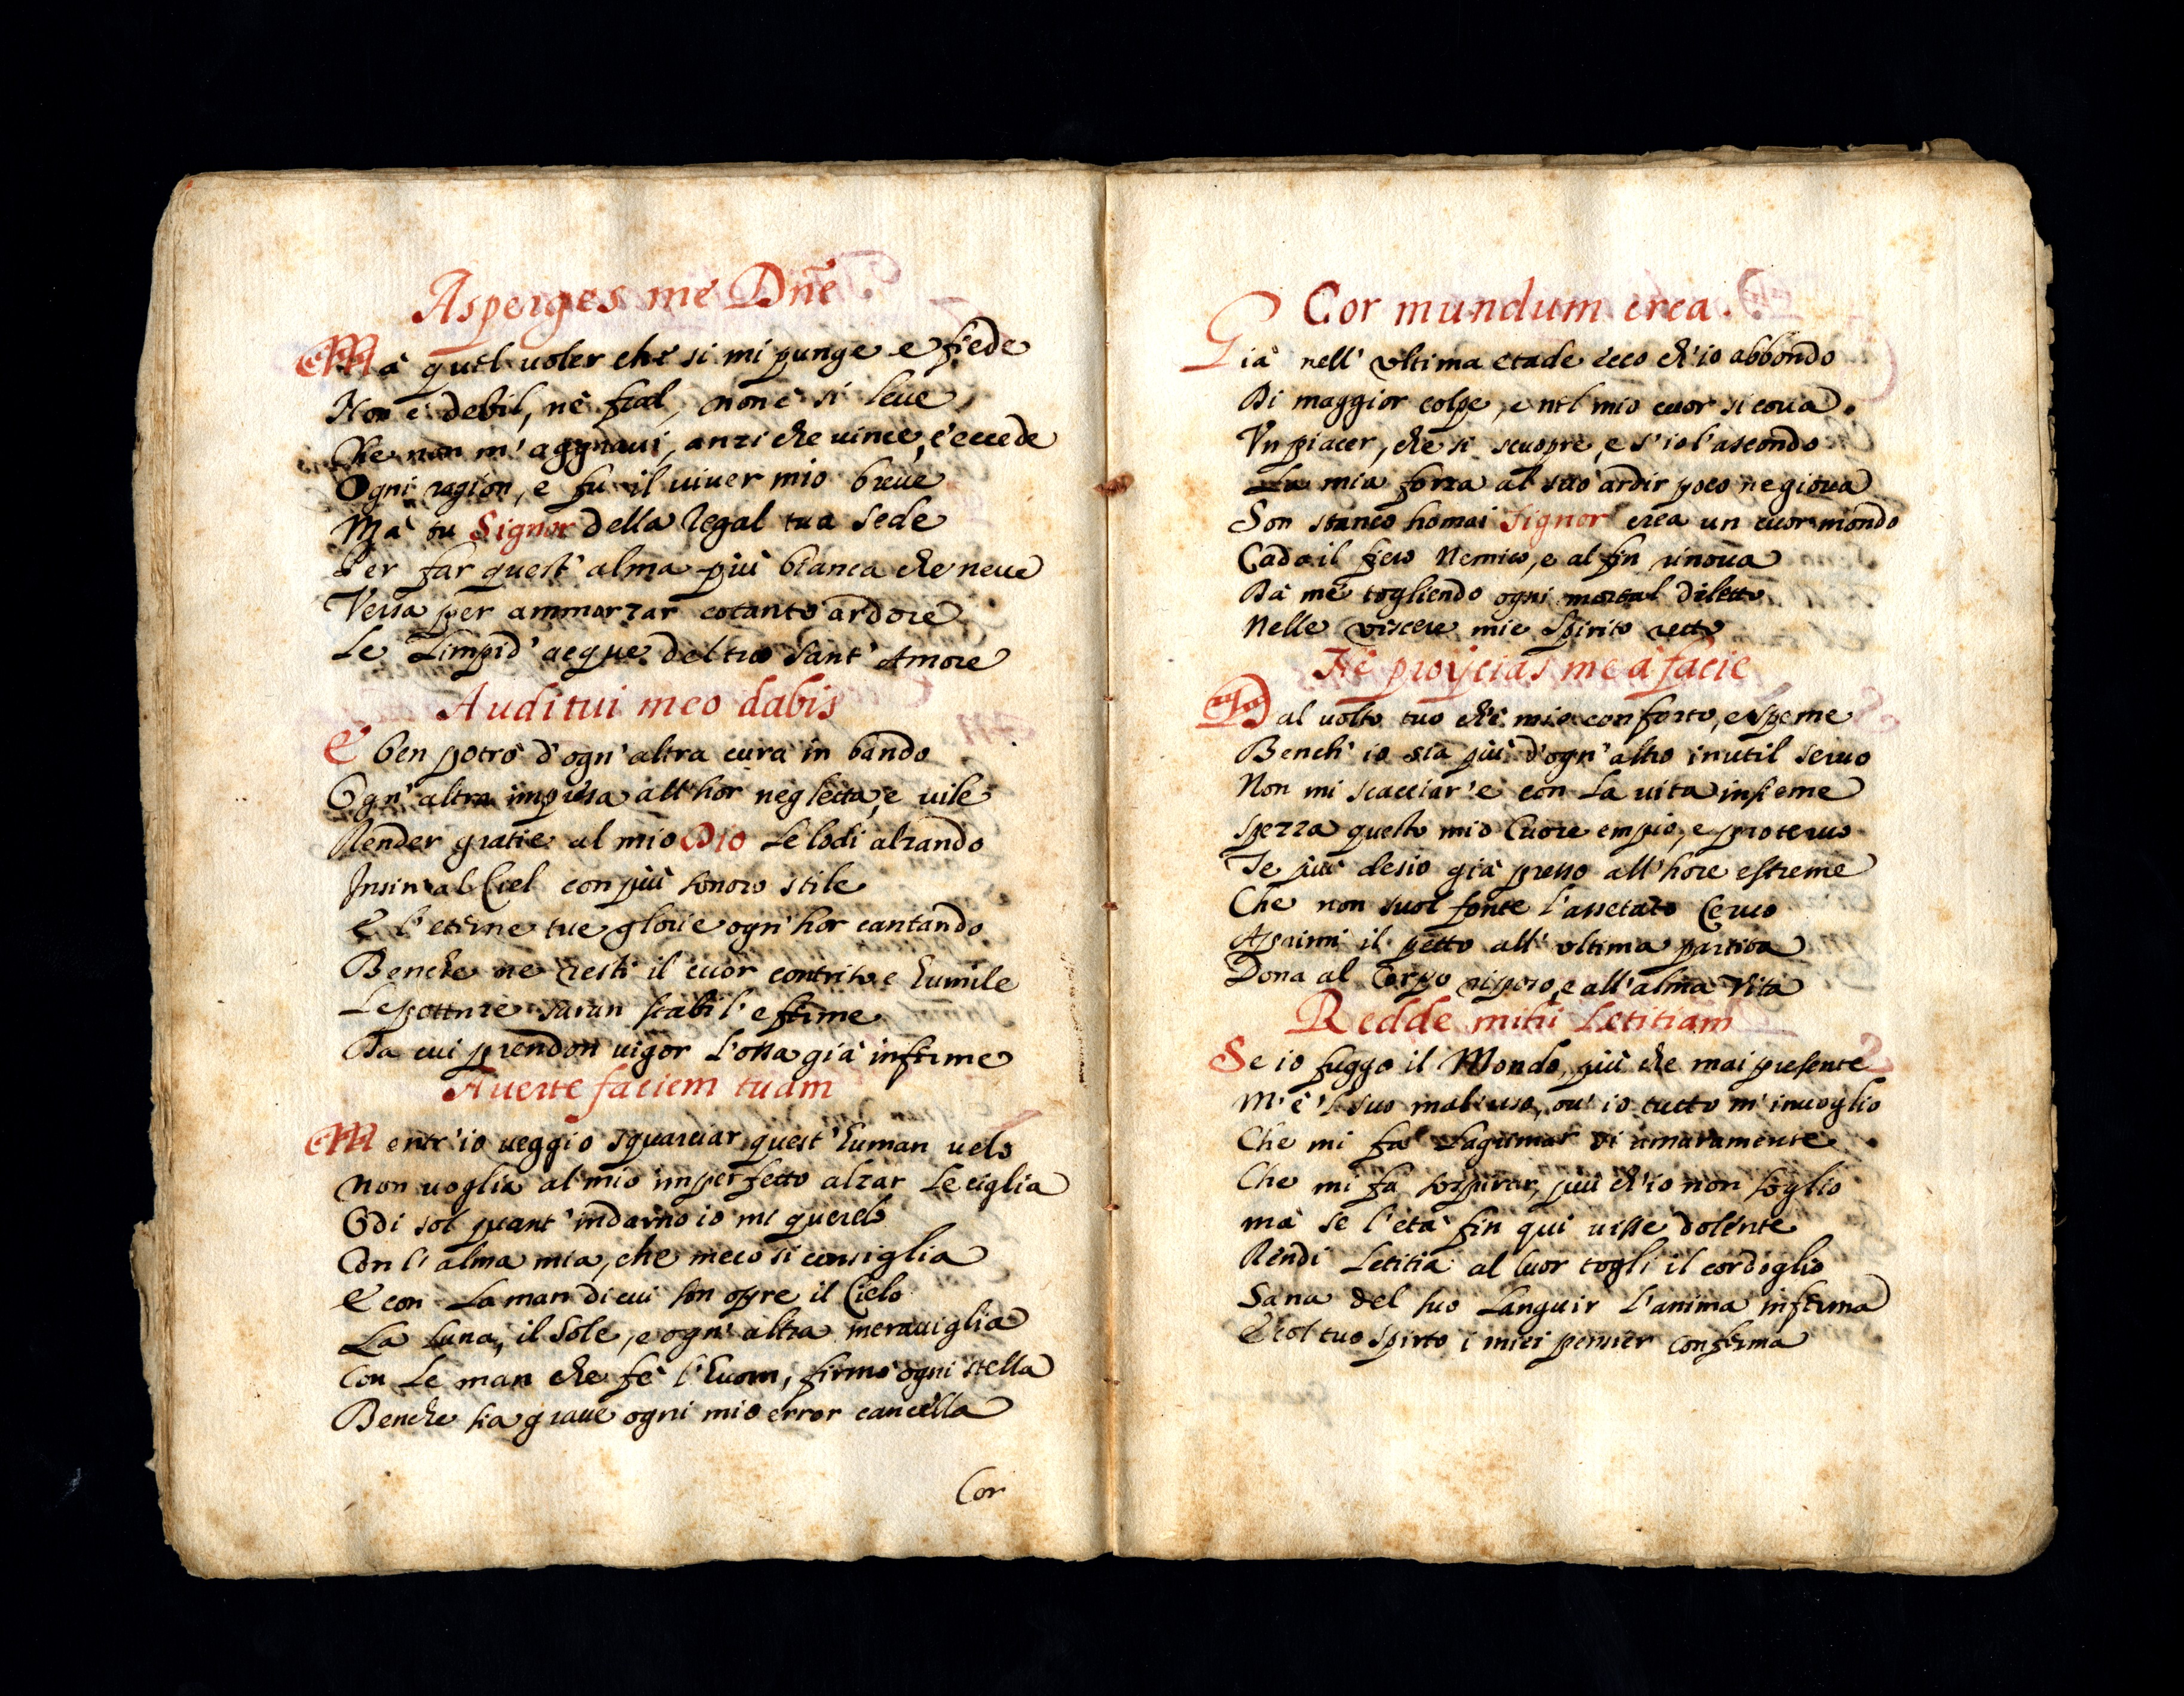 Asperges me Dñe.
Mà quel voler che si mi punge e fiede
Non è debil, nè fral, non è si leue
Che non m'aggraui, anzi che uince, e eccede
Ogni ragion, e fu il uiuer mio breue
Mà tu Signor della Regal tua sede
Per far quest'alma più bianca che neue
Versa per ammorzar cotanto ardore
Le Limpid'acque del tuo Sant'Amore
Auditui meo dabis
E ben potrò d'ogn'altra cura in bando
Ogn'altra impresa all'hor negletta, e uile
Render gratie al mio Dio Le lodi alzando
Insin al Ciel con più sonoro stile
E l'eterne tue glorie ogn'hor cantando
Benche ne resti il cuor contrito e humile
Le potture saran stabil'e ferme
Da cui prendon uigor l'ossa già inferme
Auerte faciem tuam
Mentr'io ueggio squarciar quest'human uelo
Non uoglia al mio imperfetto alzar Le ciglia
Odi sol quant'indarno io mi querelo
Con l'alma mia, che meco si consiglia
E con La man di cui son opre il Cielo
La Luna, il Sole, e ogn'altra merauiglia
Con Le man che fè l'huom, firmò ogni stella
Benche sia graue ogni mio error cancella
Cor
Cor mundum crea.
Già nell'vltima etade ecco ch'io abbondo
Di maggior colpe, e nel mio cuor si coua
Vn piacer, che si scuopre, e s'io l'ascondo
La mia forza al suo ardir poco ne gioua
Son stanco homai Signor crea un cuor mondo
Cada il fiero Nemico, e al fin rinoua
Dà me togliendo ogni mortal diletto
Nelle viscere mie Spirito retto
Ne proijcias me à facie
Dal uolto tuo ch'è mio conforto, e speme
Bench'io sia più d'ogn'altro inutil seruo
Non mi scacciar'e con La uita insieme
Spezza questo mio Cuore empio, e proteruo
Te più desio già presso all'hore estreme
Che non suol fonte l'assetato Ceruo
Aprimi il petto all'vltima partita
Dona al Corpo riposo, e all'alma Vita
Redde mihi Letitiam
Se io fuggo il Mondo, più che mai presente
M'è 'l suo mal'uso, ou'io tutto m'inuoglio
Che mi fà Lagrimar si amaramente
Che mi fà sospirar, più ch'io non soglio
mà se l'età fin qui uisse dolente
Rendi Letitia al Cuor togli il cordoglio
Sana del suo Languir l'anima inferma
E col tuo Spirto i miei pensier conferma